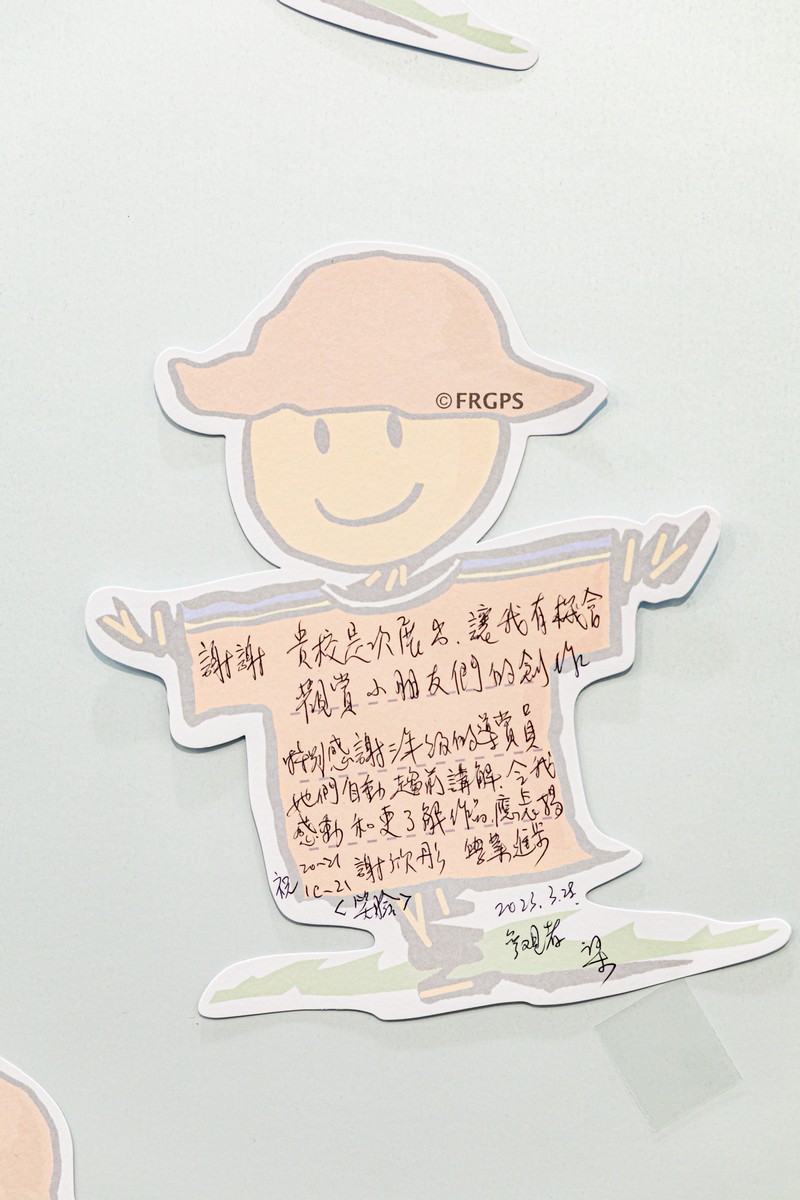 ©FRGPS
謝謝 貴校是次展出、讓我有機會
觀賞小朋友們的創作
特別感謝三年級的導賞員
她們自動趨前講解、令我
感動和更了解作品、應表揚
20-21 謝欣彤 學業進步
祝 1C-21
<笑臉>
2023.3.28
參觀者 梁